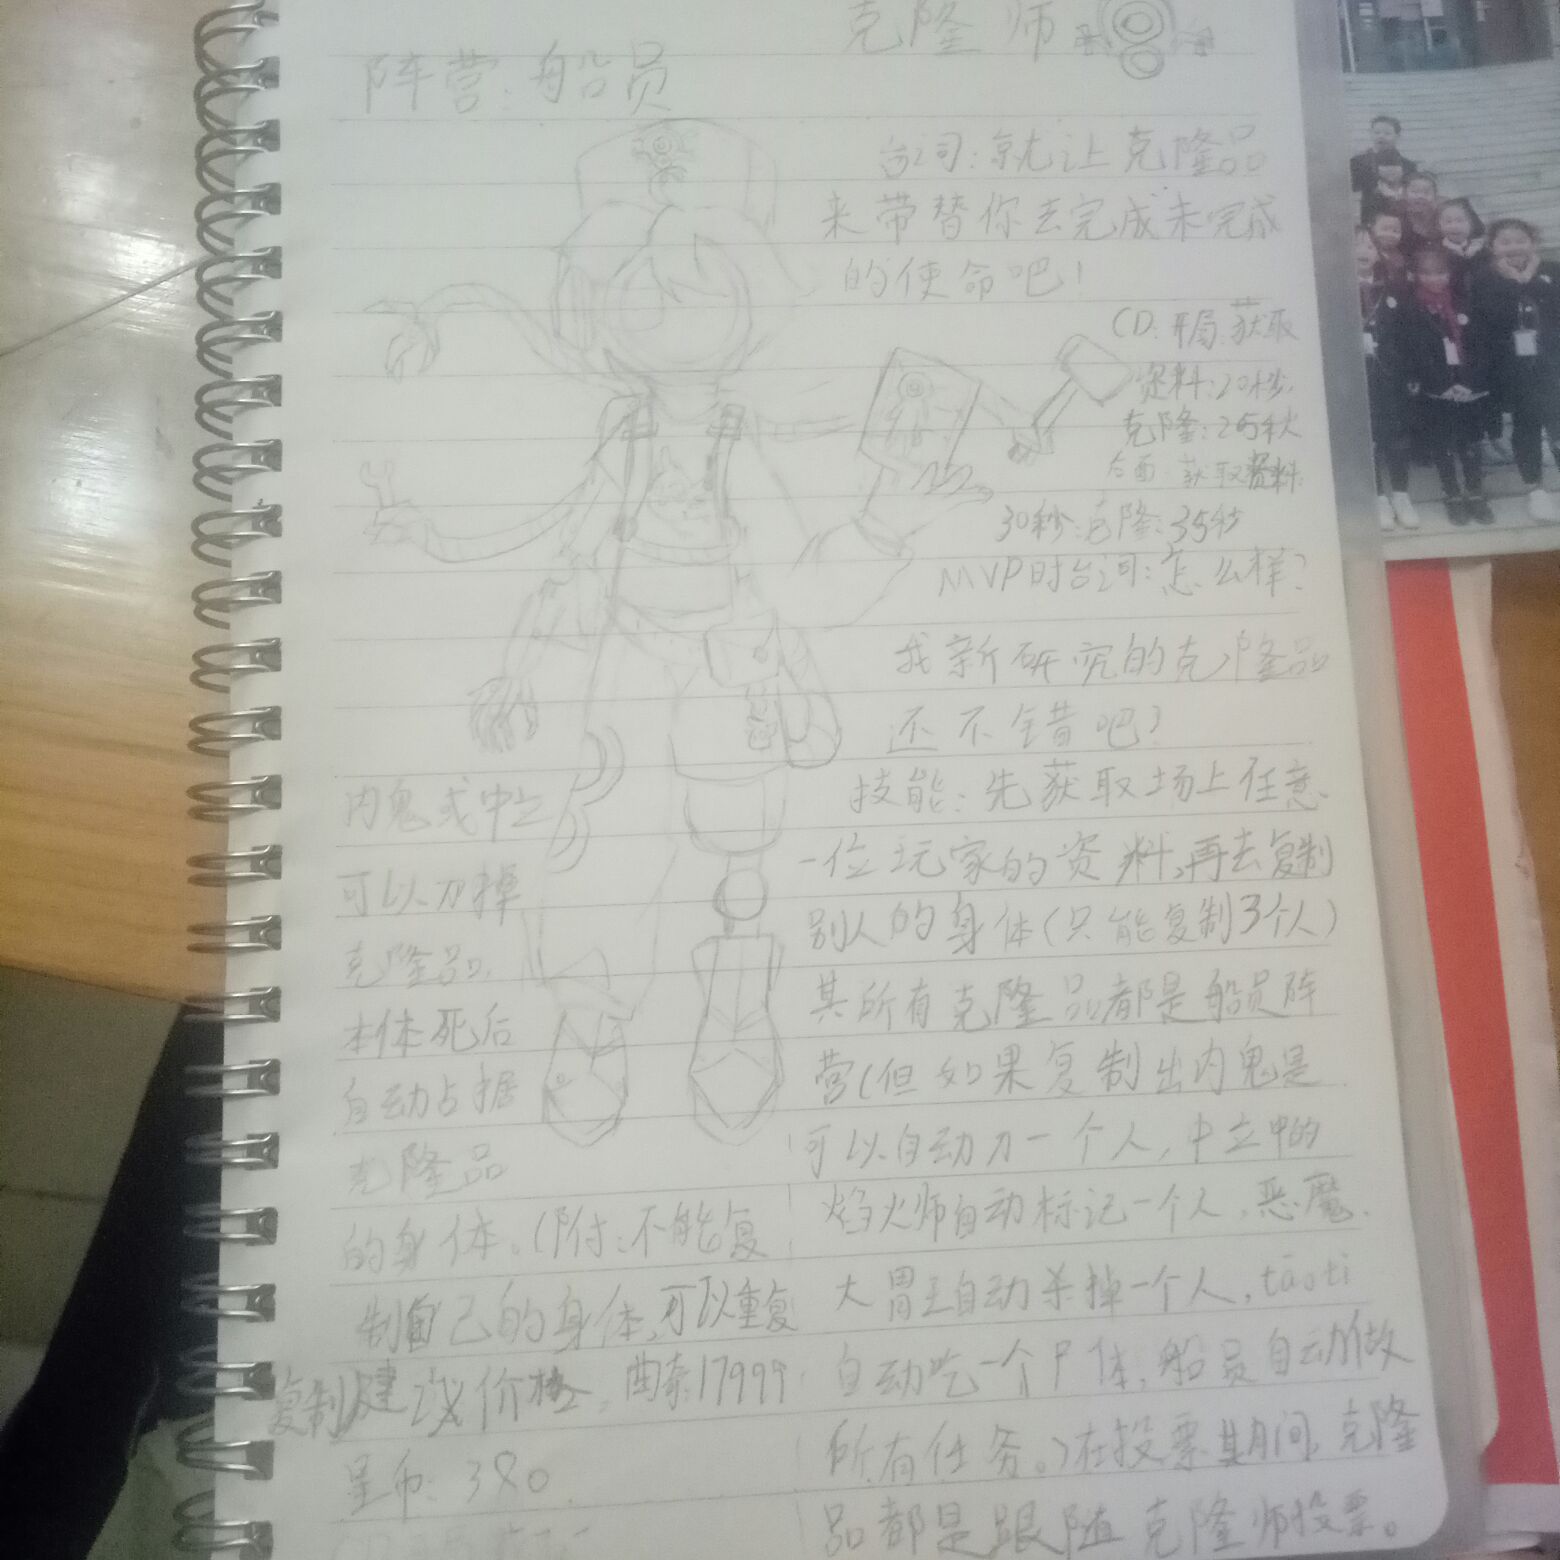 克隆师
阵营:船员
台词:就让克隆品
来带替你去完成未完成
的使命吧!
CD:开局:获取
资料:20秒
克隆:25秒
后面:获取资料:
30秒:克隆:35秒
MVP时台词:怎么样?
我新研究的克隆品
还不错吧?
技能:先获取场上任意
一位玩家的资料,再去复制
别人的身体(只能复制3个人)
其所有克隆品都是船员阵
营(但如果复制出内鬼是
可以自动刀一个人,中立中的
焰火师自动标记一个人,恶魔、
大胃王自动杀掉一个人,tāo tì
自动吃一个尸体,船员自动做
所有任务。)在投票期间,克隆
品都是跟随克隆师投票。
内鬼或中立
可以刀掉
克隆品.
本体死后
自动占据
克隆品
的身体。(附:不能复
制自己的身体,可以重复
复制)建议价格,曲奇17999
星币:380